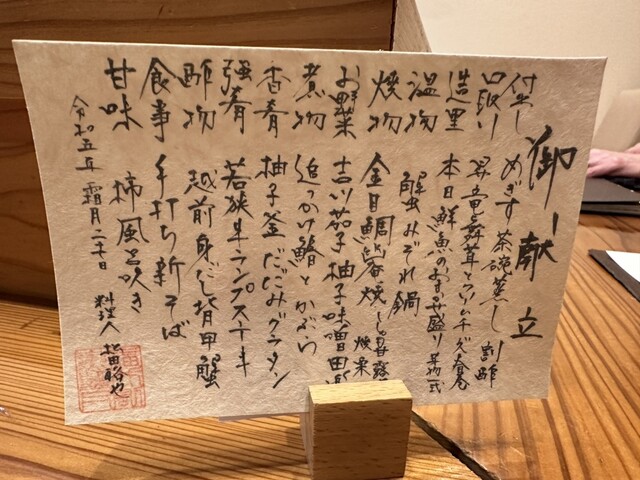 御献立
付出し めぎす茶碗蒸し 割酢
口取り 昇竜舞茸とクリームチーズ春巻
造里 本日鮮魚のおまかせ盛り 一式
温物 蟹みぞれ鍋
焼物 金目鯛 焼
お野菜 吉川茄子柚子味噌田楽
煮物 追っかけ鰤とかぶら
香肴 柚子釜だだみグラタン
強肴 若狭牛ランプステーキ
酢物 越前身だし背甲蟹
食事 手打ち新そば
甘味 柿風呂吹き
令和五年 霜月二十日
料理人 裕也